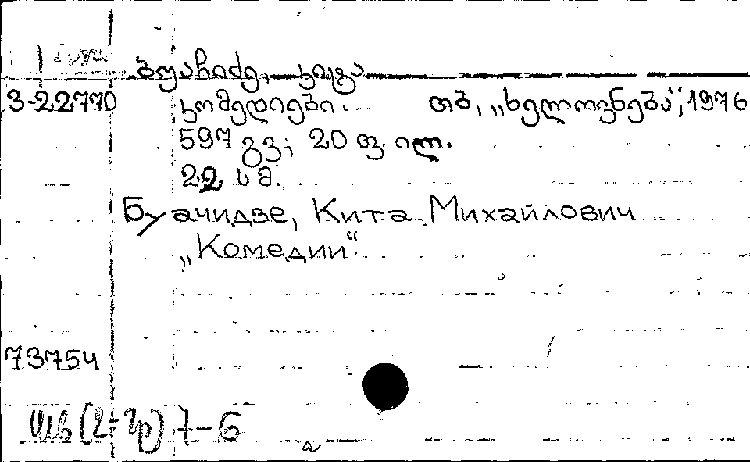 ბუაჩიძე, კიტა
3-22770 კომედიები. თბ, „ხელოვნება“, 1976
597 გვ; 20 ფ. ილ.
22 სმ.
Буачидзе, Кита Михайлович
„Комедии“
73754
7-6